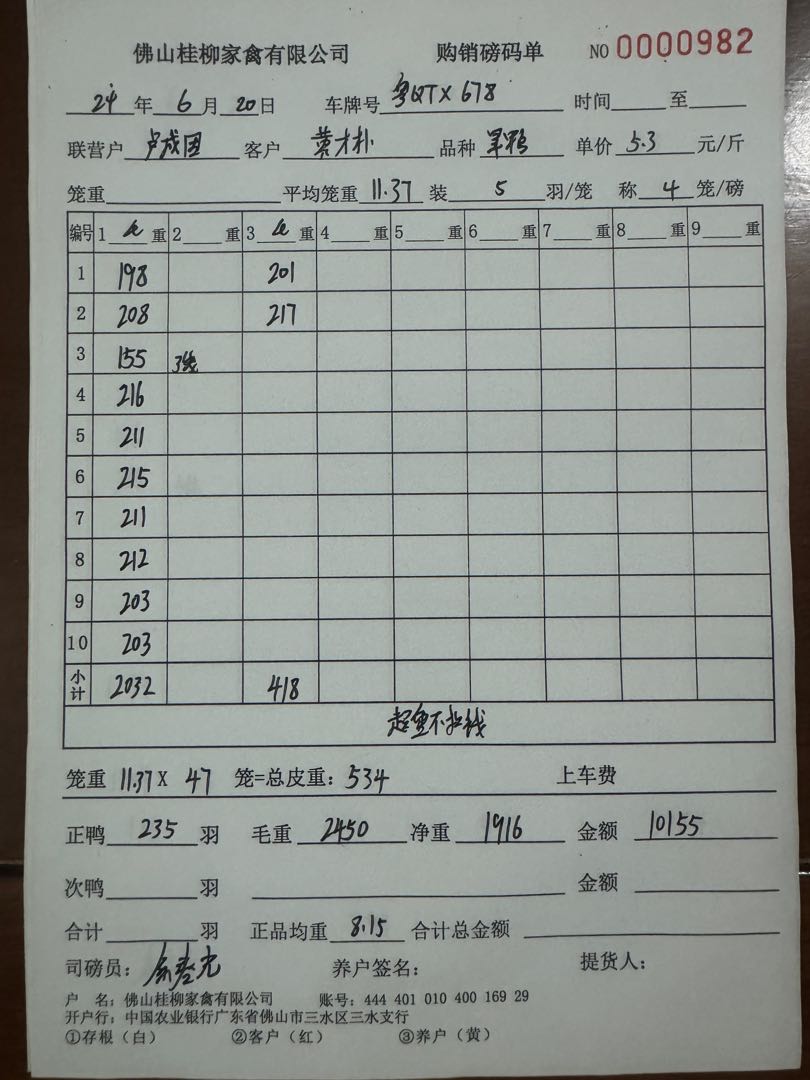 佛山桂柳家禽有限公司 购销磅码单 NO 0000982
24 年 6 月 20 日 车牌号 粤QTX678 时间 至
联营户 卢成团 客户 黄才朴 品种 单价 5.3 元/斤
笼重 平均笼重 11.37 装 5 羽/笼 称 4 笼/磅
编号 1 重 2 重 3 重 4 重 5 重 6 重 7 重 8 重 9 重
1 198 201
2 208 217
3 155 3笼
4 216
5 211
6 215
7 211
8 212
9 203
10 203
小计 2032 418
超重不扣钱
笼重 11.37 X 47 笼=总皮重: 534 上车费
正鸭 235 羽 毛重 2450 净重 1916 金额 10155
次鸭 羽 金额
合计 羽 正品均重 8.15 合计总金额
司磅员: 养户签名: 提货人:
户 名: 佛山桂柳家禽有限公司 账号: 444 401 010 400 169 29
开户行: 中国农业银行广东省佛山市三水区三水支行
①存根(白) ②客户(红) ③养户(黄)